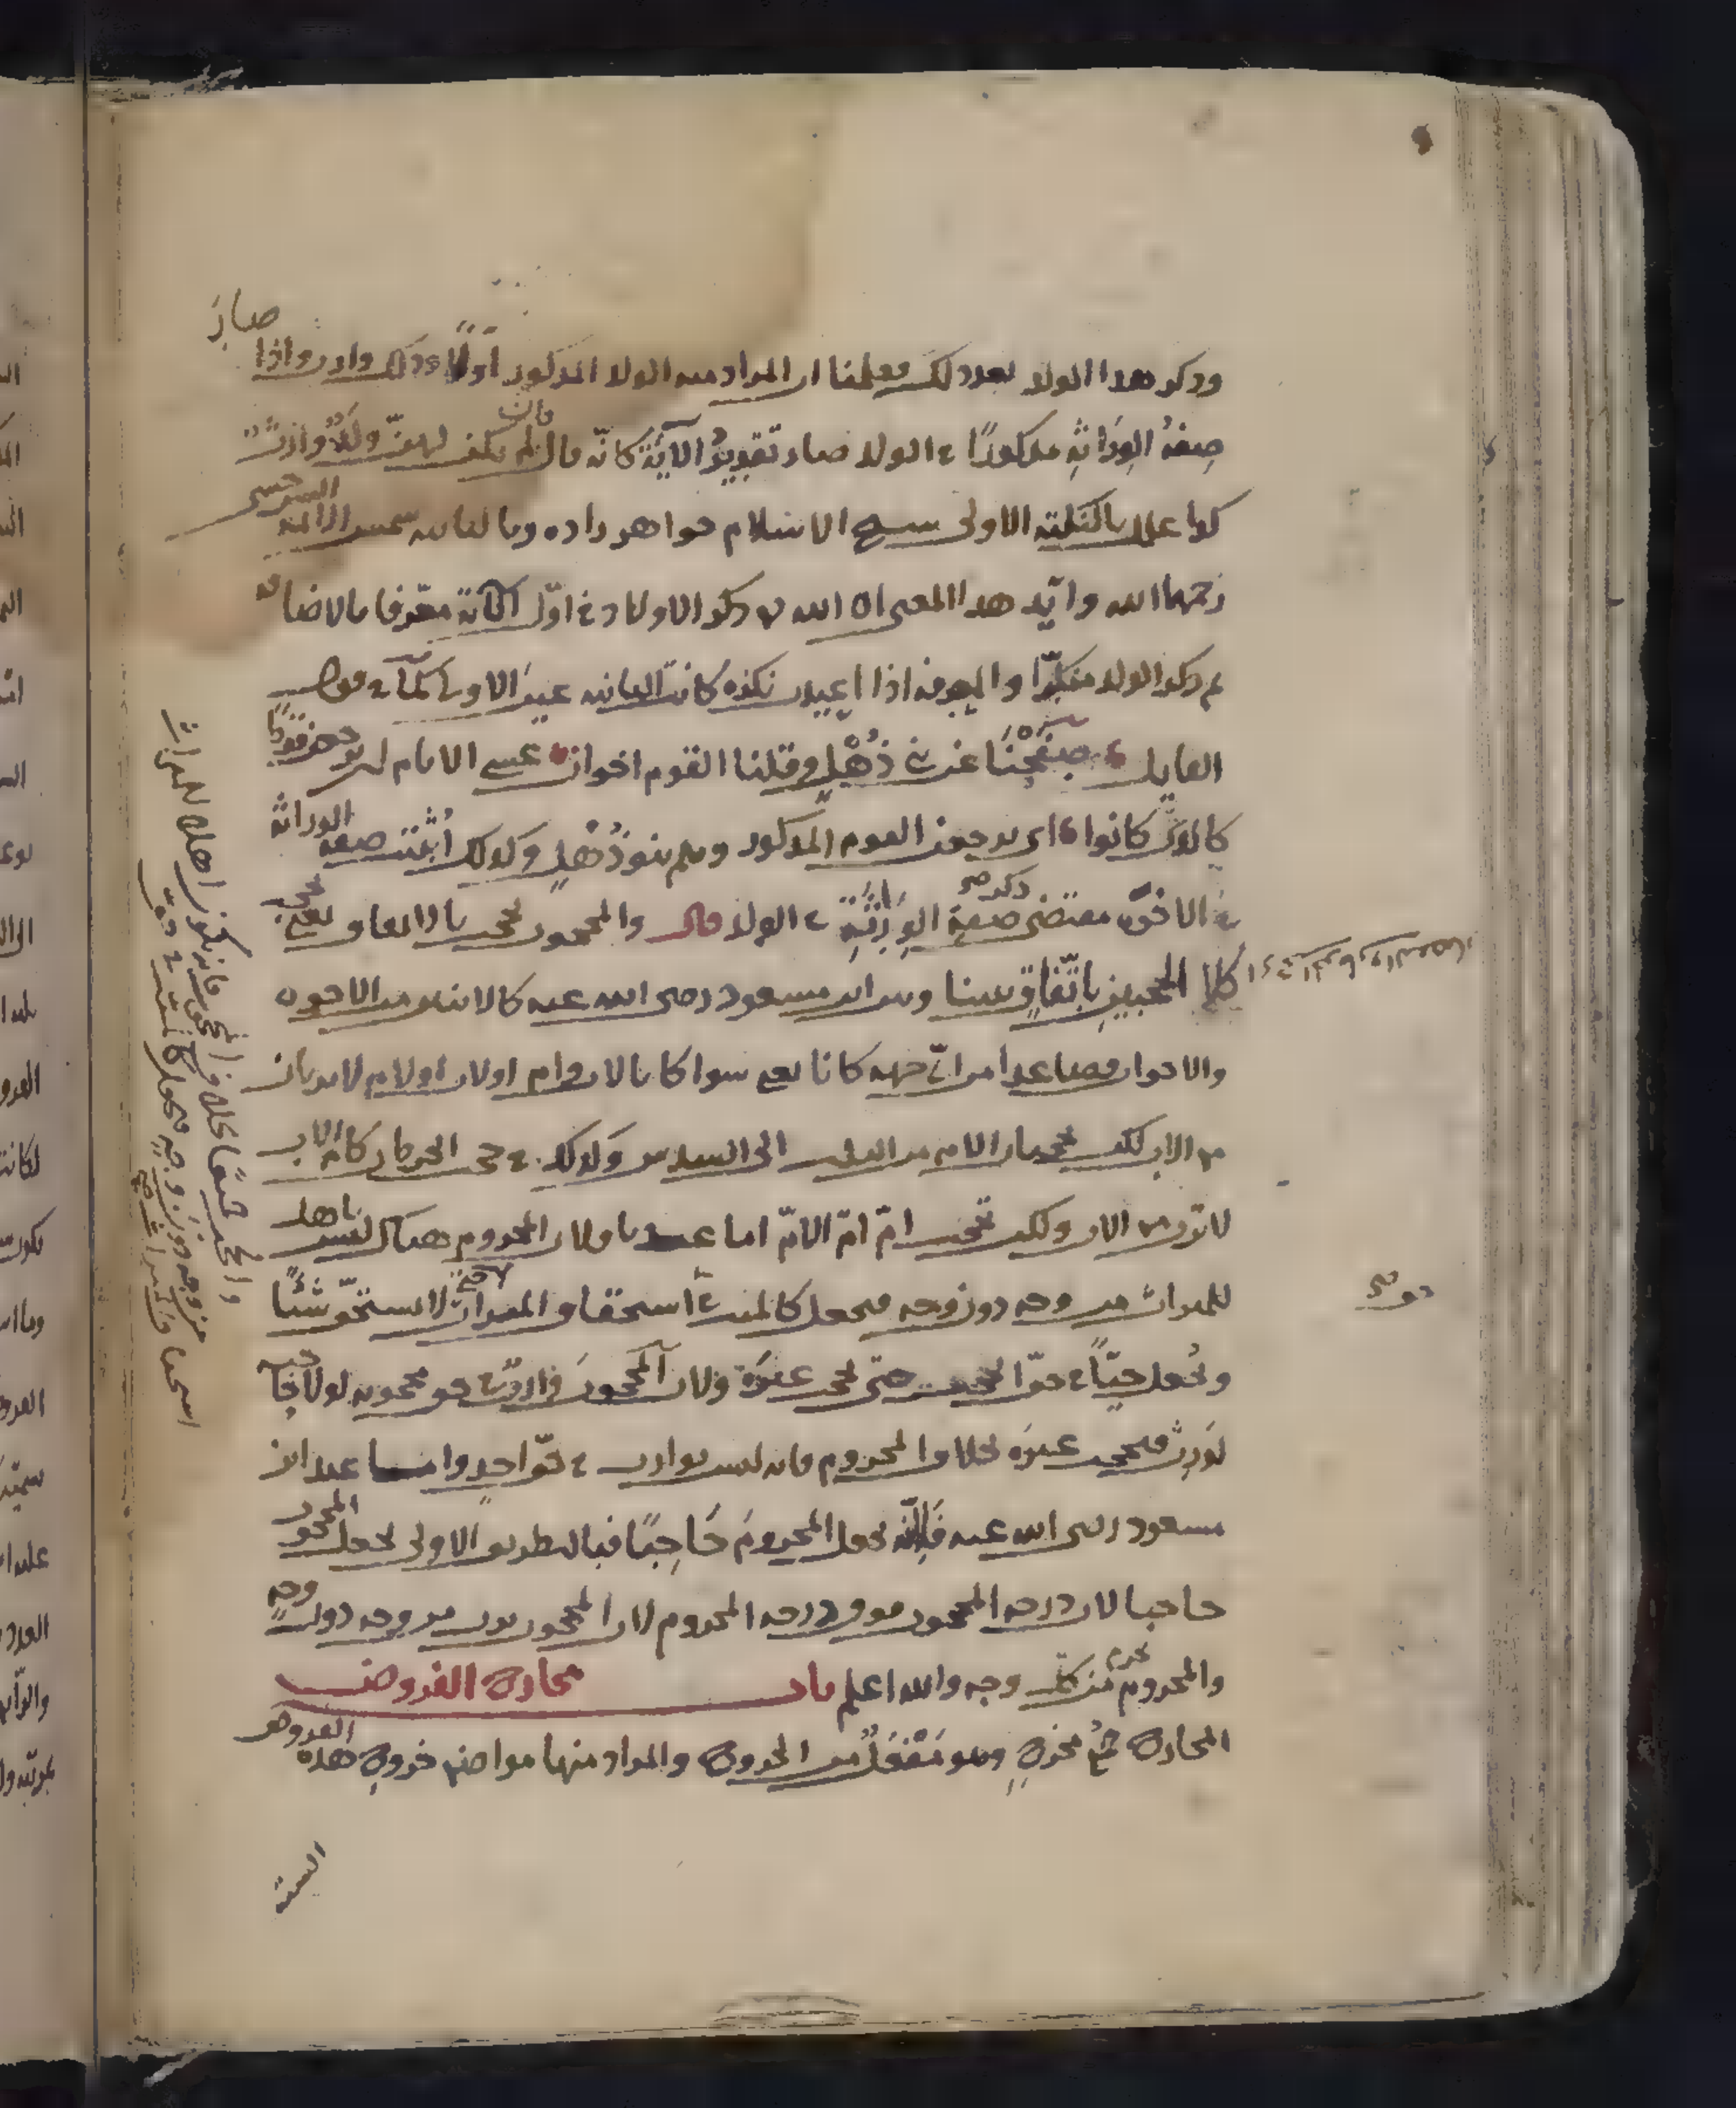 وذكر هذا الولد بعد ذلك فعلمنا ان المراد منه الولد المذكور اولا وذلك وارث واذا صارت
صفة الوراثة مذكورا في الولد صار تقدير الآية كانه قال فان لم يكن لهن ولد وارث
كذا علل بالنكتة الاولى شيخ الاسلام خواهر زاده وبالثانية شمس الائمة السرخسي
رحمهما الله وايد هذا المعنى ان الله ذكر الاولاد في اول الآية معرفا بالاضافة
ثم ذكر الولد منكرا والمعرفة اذا اعيدت نكرة كانت الثانية عين الاولى كما في قول
القايل صفحنا عن بني ذهل وقلنا القوم اخوان عسى الايام ان يرجعن قوما
كالذي كانوا اي يرجعن القوم المذكور وهم بنو ذهل وكذلك اثبتت صفة الوراثة
في الاخوة مقتضى ذكر صفة الورثة في الولد قال والمحجوب يحجب بالاتفاق يعني يحجب
كلا الحجبين باتفاق بيننا وبين ابن مسعود رضي الله عنه كالاثنين من الاخوة
والاخوات فصاعدا من اي جهة كانا يعني سواء كانا لاب وام او لاب او لام لا يرثان
مع الاب لكن يحجبان الام من الثلث الى السدس وكذلك في حجب الحرمان كام الاب
لا ترث مع الاب ولكن تحجب ام ام الام اما عندنا فلان المحروم هناك ليس باهل
للميراث من وجه دون وجه فيجعل كالميت في استحقاق الميراث لا يستحق شيئا
ويجعل حيا في حق الحجب حتى يحجب غيره ولان المحجوب وارث في حق محجوبه لولا حاجبه
لورث فيحجب غيره بخلاف المحروم فانه ليس بوارث في حق احد واما عند ابن
مسعود رضي الله عنه فلانه يجعل المحروم حاجبا فبالطريق الاولى يجعل المحجوب
حاجبا لان درجة المحجوب فوق درجة المحروم لان المحجوب يرث من وجه دون وجه
والمحروم يحرم من كل وجه والله اعلم باب مخارج الفروض
المخارج جمع مخرج وهو مفعل من الخروج والمراد منها مواضع خروج هذه الفروض
الستة